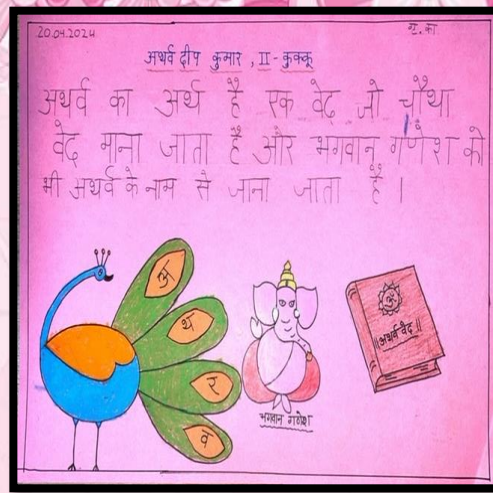 20.04.2024
गृ. का
अथर्व दीप कुमार , II - कुक्कू
अथर्व का अर्थ है एक वेद जो चौथा
वेद माना जाता है और भगवान गणेश को
भी अथर्व के नाम से जाना जाता है ।
अ
थ
र
व
भगवान गणेश
॥अथर्व वेद॥